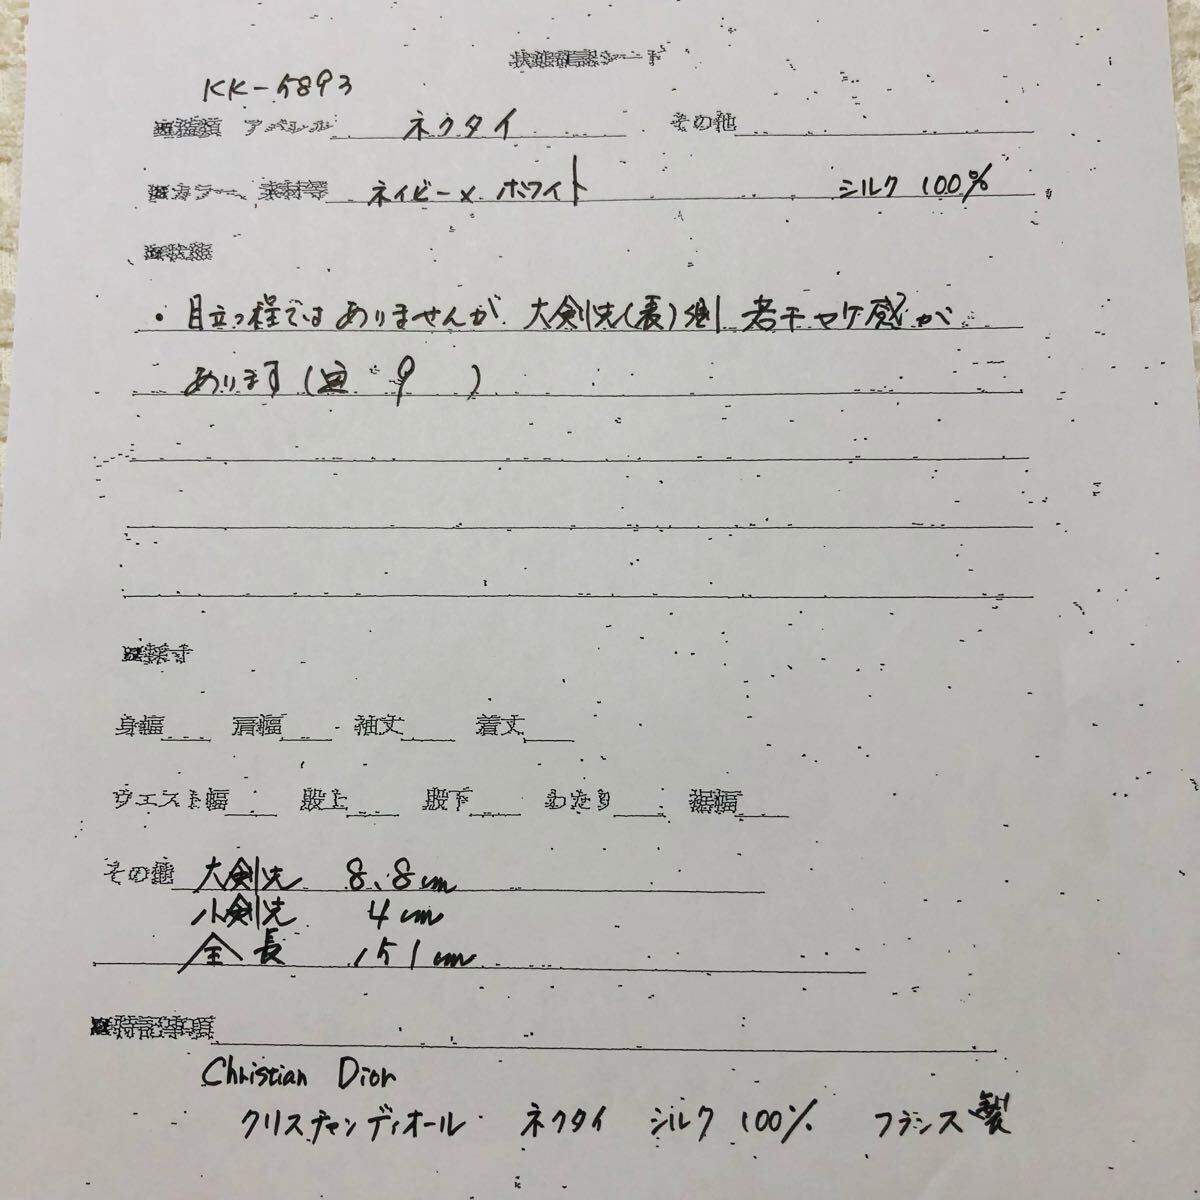 状態確認シート
KK-5893
■種類 アパレル ネクタイ その他
■カラー、素材等 ネイビー×ホワイト シルク 100%
■状態
・目立つ程ではありませんが、大剣先(表)側 若干ヤケ感が
あります( 9 )
■採寸
身幅 肩幅 袖丈 着丈
ウエスト幅 股上 股下 わたり 裾幅
その他 大剣先 8.8cm
小剣先 4cm
全長 151cm
■特記事項
Christian Dior
クリスチャンディオール ネクタイ シルク 100% フランス製